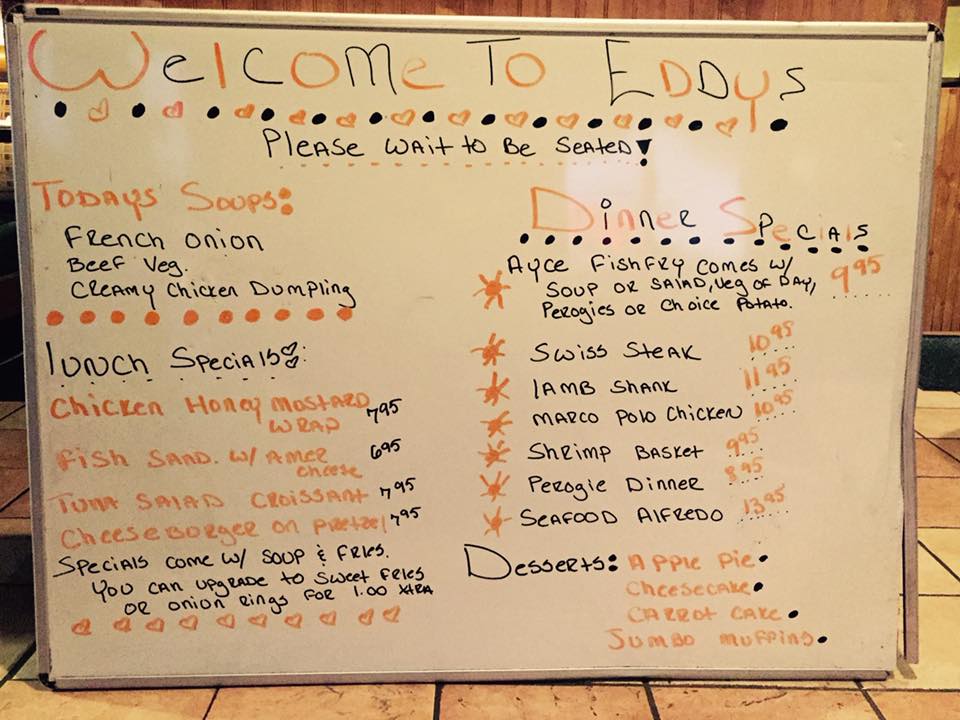 Welcome To Eddys
Please Wait to Be Seated!
Todays Soups:
French Onion
Beef Veg.
Creamy Chicken Dumpling
Lunch Specials:
Chicken Honey Mostard 7.95
Wrap
Fish Sand. w/ Amer 6.95
cheese
Tuna Salad Croissant 7.95
Cheeseborger on Pretzel 7.95
Specials come w/ soup & fries.
You can upgrade to sweet fries
or onion rings for 1.00 xtra
Dinner Specials
Ayce Fishfry comes w/ 9.95
soup or salad, veg of day,
perogies or choice potato.
Swiss Steak 10.95
Lamb Shank 11.95
Marco Polo Chicken 10.95
Shrimp Basket 9.95
Perogie Dinner 8.95
Seafood Alfredo 13.95
Desserts: Apple Pie
Cheesecake
Carrot Cake
Jumbo Muffins